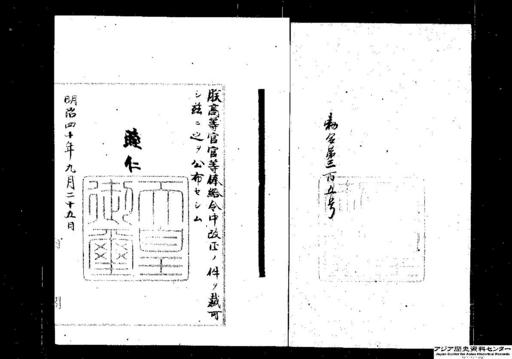 勅令第三百五号
朕高等官官等俸給令中改正ノ件ヲ裁可
シ茲ニ之ヲ公布セシム
睦仁
天皇
御璽
明治四十年九月二十五日
アジア歴史資料センター
Japan Center for Asian Historical Records